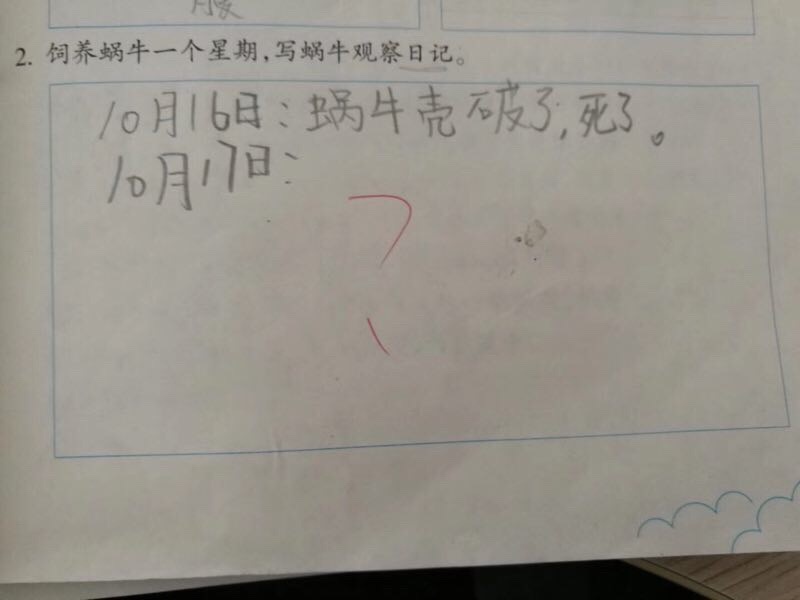 腹
2. 饲养蜗牛一个星期,写蜗牛观察日记。
10月16日:蜗牛壳破了,死了。
10月17日:
?